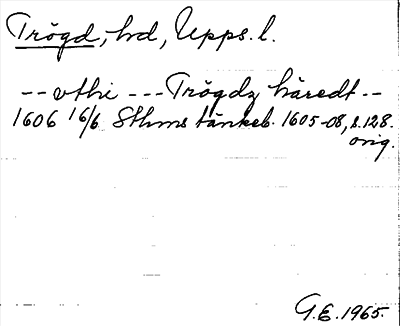 Trögd, hd, Upps. l.
-- vthi --- Trögdz häredt --
1606 16/6 Sthms tänkeb. 1605-08, s. 128.
orig.
G.E. 1965.